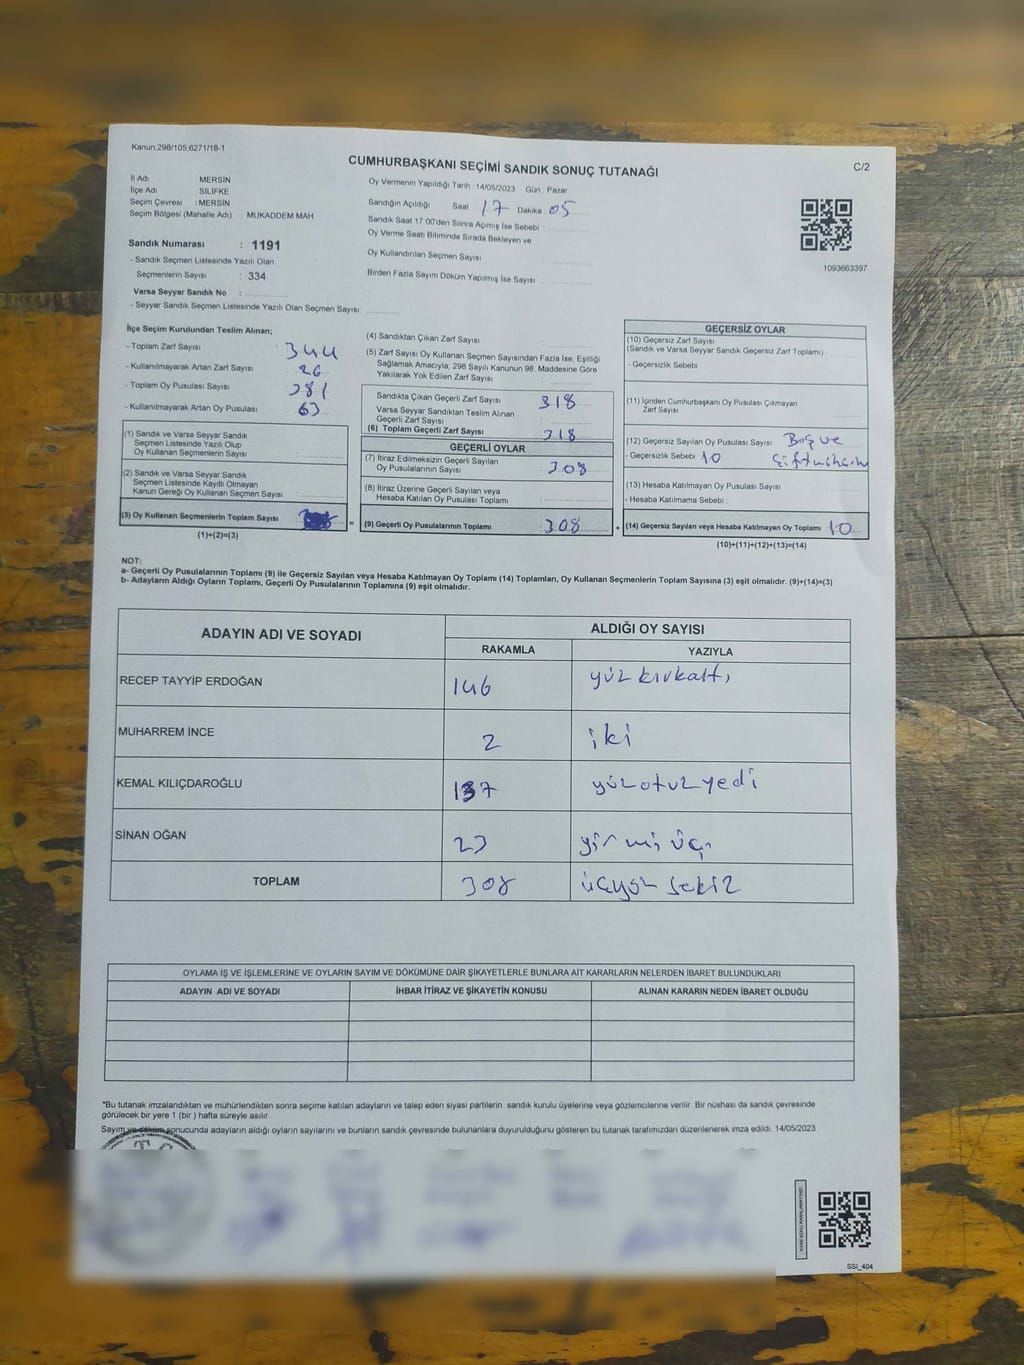 Kanun;298/105;6271/18-1
CUMHURBAŞKANI SEÇİMİ SANDIK SONUÇ TUTANAĞI
C/2
İl Adı MERSİN
İlçe Adı SİLİFKE
Seçim Çevresi : MERSİN
Seçim Bölgesi (Mahalle Adı) : MUKADDEM MAH.
Sandık Numarası : 1191
- Sandık Seçmen Listesinde Yazılı Olan
Seçmenlerin Sayısı : 334
Varsa Seyyar Sandık No :
- Seyyar Sandık Seçmen Listesinde Yazılı Olan Seçmen Sayısı:
Oy Vermenin Yapıldığı Tarih : 14/05/2023 Gün : Pazar
Sandığın Açıldığı Saat 17 Dakika : 05
Sandık Saat 17:00'den Sonra Açımış İse Sebebi :
Oy Verme Saati Bitiminde Sırada Bekleyen ve
Oy Kullandırılan Seçmen Sayısı
Birden Fazla Sayım Döküm Yapılmış İse Sayısı :
1093663397
İlçe Seçim Kurulundan Teslim Alınan;
- Toplam Zarf Sayısı : 344
- Kullanılmayarak Artan Zarf Sayısı : 26
- Toplam Oy Pusulası Sayısı : 381
- Kullanılmayarak Artan Oy Pusulası : 63
(1) Sandık ve Varsa Seyyar Sandık
Seçmen Listesinde Yazılı Olup
Oy Kullanan Seçmenlerin Sayısı :
(2) Sandık ve Varsa Seyyar Sandık
Seçmen Listesinde Kayıtlı Olmayan
Kanun Gereği Oy Kullanan Seçmen Sayısı :
(3) Oy Kullanan Seçmenlerin Toplam Sayısı :
=
(1)+(2)=(3)
(4) Sandıktan Çıkan Zarf Sayısı :
(5) Zarf Sayısı Oy Kullanan Seçmen Sayısından Fazla İse, Eşitliği
Sağlamak Amacıyla; 298 Sayılı Kanunun 98. Maddesine Göre
Yakılarak Yok Edilen Zarf Sayısı :
Sandıkta Çıkan Geçerli Zarf Sayısı : 318
Varsa Seyyar Sandıktan Teslim Alınan
Geçerli Zarf Sayısı :
(6) Toplam Geçerli Zarf Sayısı : 318
GEÇERLİ OYLAR
(7) İtiraz Edilmeksizin Geçerli Sayılan
Oy Pusulalarının Sayısı : 308
(8) İtiraz Üzerine Geçerli Sayılan veya
Hesaba Katılan Oy Pusulası Toplamı :
(9) Geçerli Oy Pusulalarının Toplamı : 308
+
GEÇERSİZ OYLAR
(10) Geçersiz Zarf Sayısı
(Sandık ve Varsa Seyyar Sandık Geçersiz Zarf Toplamı) :
- Geçersizlik Sebebi :
(11) İçinden Cumhurbaşkanı Oy Pusulası Çıkmayan
Zarf Sayısı :
(12) Geçersiz Sayılan Oy Pusulası Sayısı : Boş ve
- Geçersizlik Sebebi 10
(13) Hesaba Katılmayan Oy Pusulası Sayısı :
- Hesaba Katılmama Sebebi :
(14) Geçersiz Sayılan veya Hesaba Katılmayan Oy Toplamı : 10
(10)+(11)+(12)+(13)=(14)
NOT:
a- Geçerli Oy Pusulalarının Toplamı (9) ile Geçersiz Sayılan veya Hesaba Katılmayan Oy Toplamı (14) Toplamları, Oy Kullanan Seçmenlerin Toplam Sayısına (3) eşit olmalıdır. (9)+(14)=(3)
b- Adayların Aldığı Oyların Toplamı, Geçerli Oy Pusulalarının Toplamına (9) eşit olmalıdır.
ADAYIN ADI VE SOYADI ALDIĞI OY SAYISI
RAKAMLA YAZIYLA
RECEP TAYYİP ERDOĞAN 146 yüz kırkaltı
MUHARREM İNCE 2 iki
KEMAL KILIÇDAROĞLU 137 yüzotuzyedi
SİNAN OĞAN 23 yirmi üç
TOPLAM 308 üçyüz sekiz
OYLAMA İŞ VE İŞLEMLERİNE VE OYLARIN SAYIM VE DÖKÜMÜNE DAİR ŞİKAYETLERLE BUNLARA AİT KARARLARIN NELERDEN İBARET BULUNDUKLARI
ADAYIN ADI VE SOYADI İHBAR İTİRAZ VE ŞİKAYETİN KONUSU ALINAN KARARIN NEDEN İBARET OLDUĞU
*Bu tutanak imzalandıktan ve mühürlendikten sonra seçime katılan adayların ve talep eden siyasi partilerin sandık kurulu üyelerine veya gözlemcilerine verilir. Bir nüshası da sandık çevresinde
görülecek bir yere 1 (bir ) hafta süreyle asılır.
Sayım ve döküm sonucunda adayların aldığı oyların sayılarını ve bunların sandık çevresinde bulunanlara duyurulduğunu gösteren bu tutanak tarafımızdan düzenlenerek imza edildi. 14/05/2023
T.C.
SSİ_404